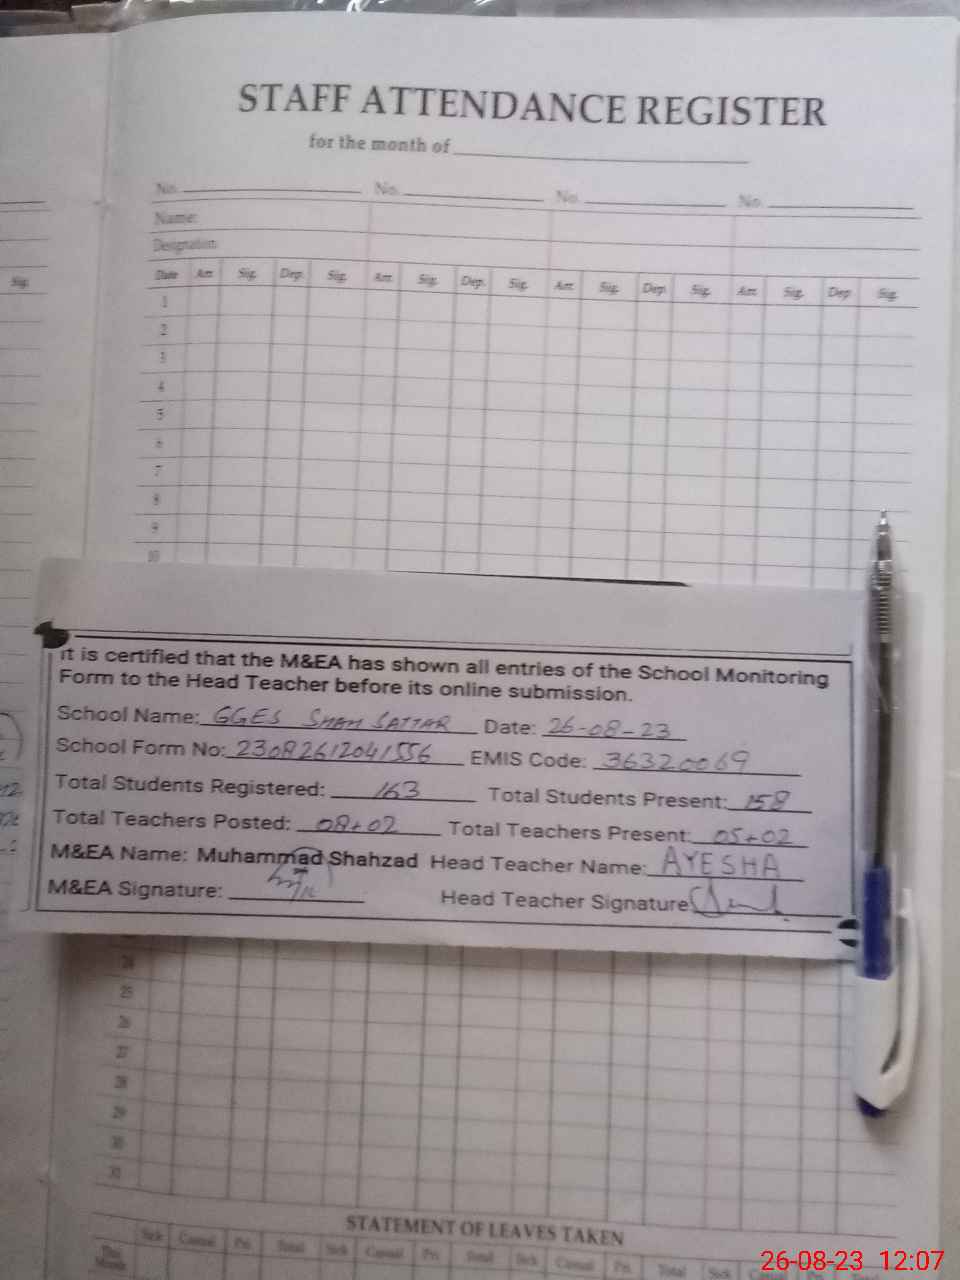 STAFF ATTENDANCE REGISTER
for the month of
No. No. No. No.
Name:
Designation
Date Arr. Sig. Dep. Sig. Arr. Sig. Dep. Sig. Arr. Sig. Dep. Sig. Arr. Sig. Dep. Sig.
Sig.
1
2
3
4
5
6
7
8
9
10
It is certified that the M&EA has shown all entries of the School Monitoring
Form to the Head Teacher before its online submission.
School Name: GGES SHAH SATTAR Date: 26-08-23
School Form No: 23082612041556 EMIS Code: 36320069
Total Students Registered: 163 Total Students Present: 158
Total Teachers Posted: 08+02 Total Teachers Present: 05+02
M&EA Name: Muhammad Shahzad Head Teacher Name: AYESHA
M&EA Signature: Head Teacher Signature
24
25
26
27
28
29
30
31
STATEMENT OF LEAVES TAKEN
Sick Casual Pri. Total Sick Casual Pri. Total Sick Casual Pri. Total Sick
This Month
26-08-23 12:07